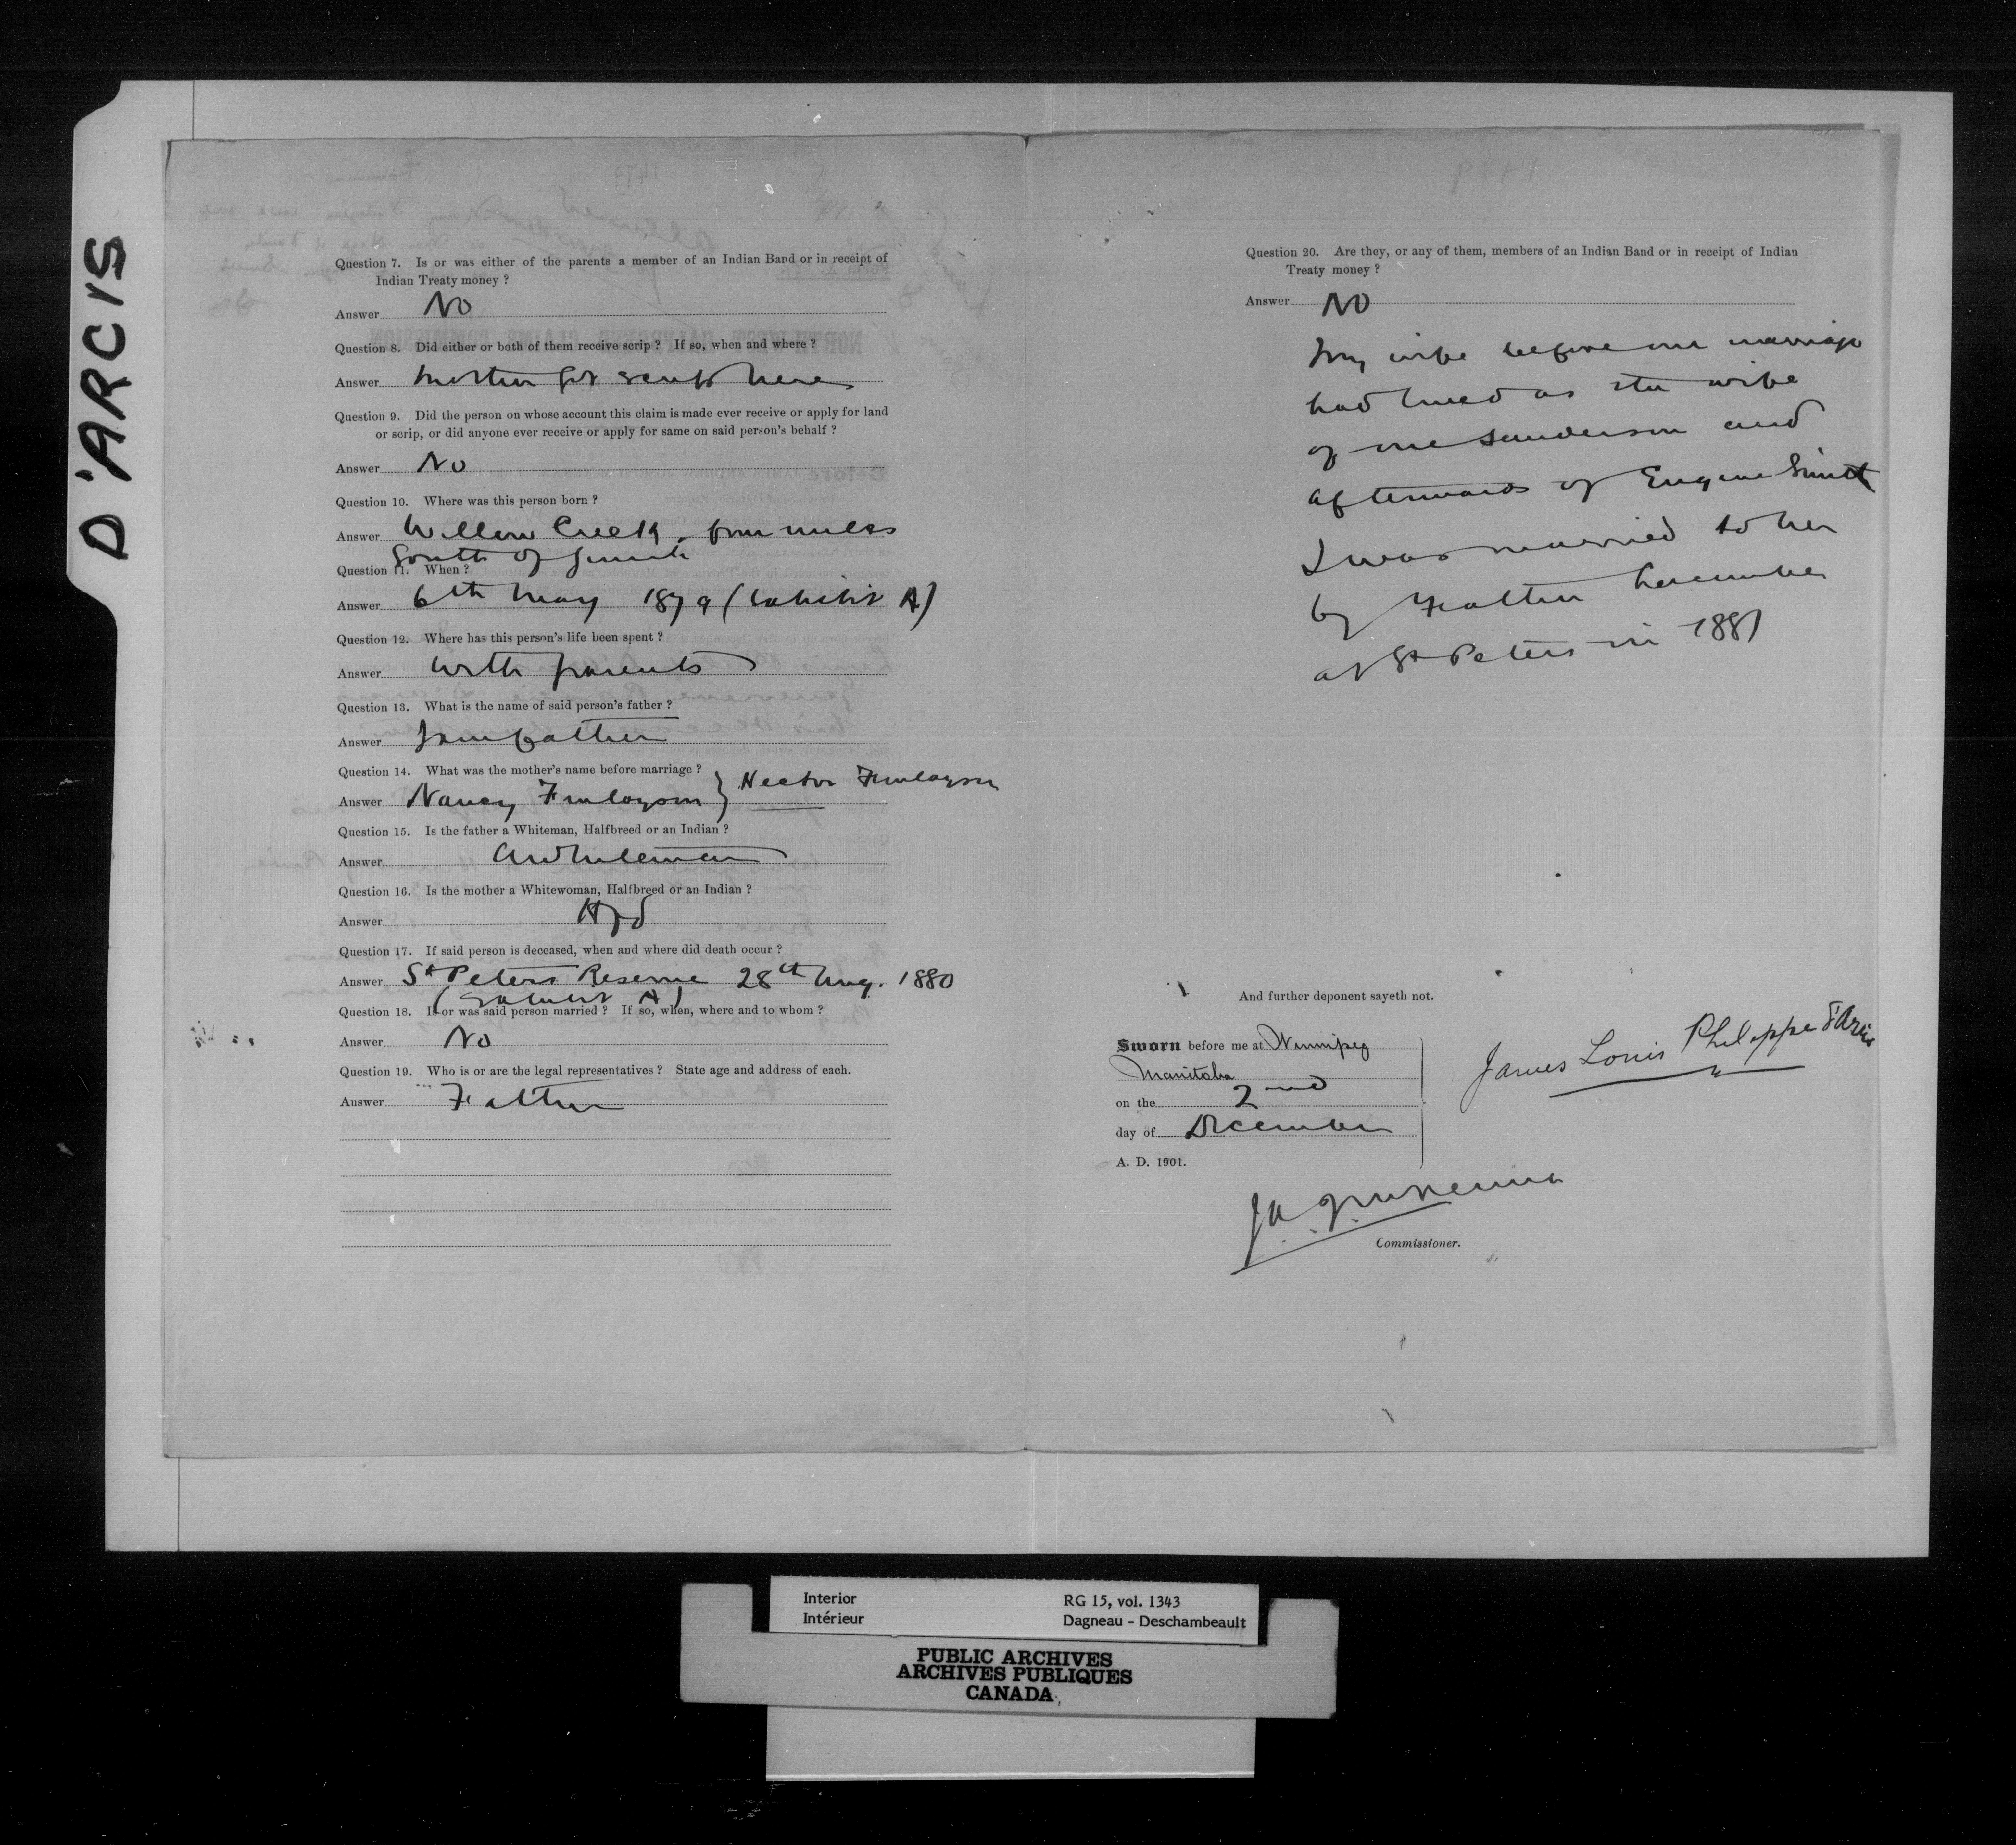 D'ARCIS
Question 7. Is or was either of the parents a member of an Indian Band or in receipt of
Indian Treaty money ?
Answer No
Question 8. Did either or both of them receive scrip ? If so, when and where ?
Answer Mother got scrip here
Question 9. Did the person on whose account this claim is made ever receive or apply for land
or scrip, or did anyone ever receive or apply for same on said person's behalf ?
Answer No
Question 10. Where was this person born ?
Answer Willow Creek, four miles
South of Gimli
Question 11. When ?
Answer 6th May 1879 (Exhibit A)
Question 12. Where has this person's life been spent ?
Answer With parents
Question 13. What is the name of said person's father ?
Answer I am father
Question 14. What was the mother's name before marriage ?
Answer Nancy Finlayson } Hector Finlayson
Question 15. Is the father a Whiteman, Halfbreed or an Indian ?
Answer A Whiteman
Question 16. Is the mother a Whitewoman, Halfbreed or an Indian ?
Answer
Question 17. If said person is deceased, when and where did death occur ?
Answer St Peters Reserve 28th Aug. 1880
(Exhibit A)
Question 18. Is or was said person married ? If so, when, where and to whom ?
Answer No
Question 19. Who is or are the legal representatives ? State age and address of each.
Answer Father
Question 20. Are they, or any of them, members of an Indian Band or in receipt of Indian
Treaty money ?
Answer No
My wife before our marriage
had lived as the wife
of one Sanderson and
afterwards of Eugene Smith
I was married to her
by Father
at St Peters in 1881
And further deponent sayeth not.
Sworn before me at Winnipeg
Manitoba
on the 2nd
day of December
A. D. 1901.
James Louis Philippe d'Arcis
Commissioner.
Interior
Intérieur
RG 15, vol. 1343
Dagneau - Deschambeault
PUBLIC ARCHIVES
ARCHIVES PUBLIQUES
CANADA